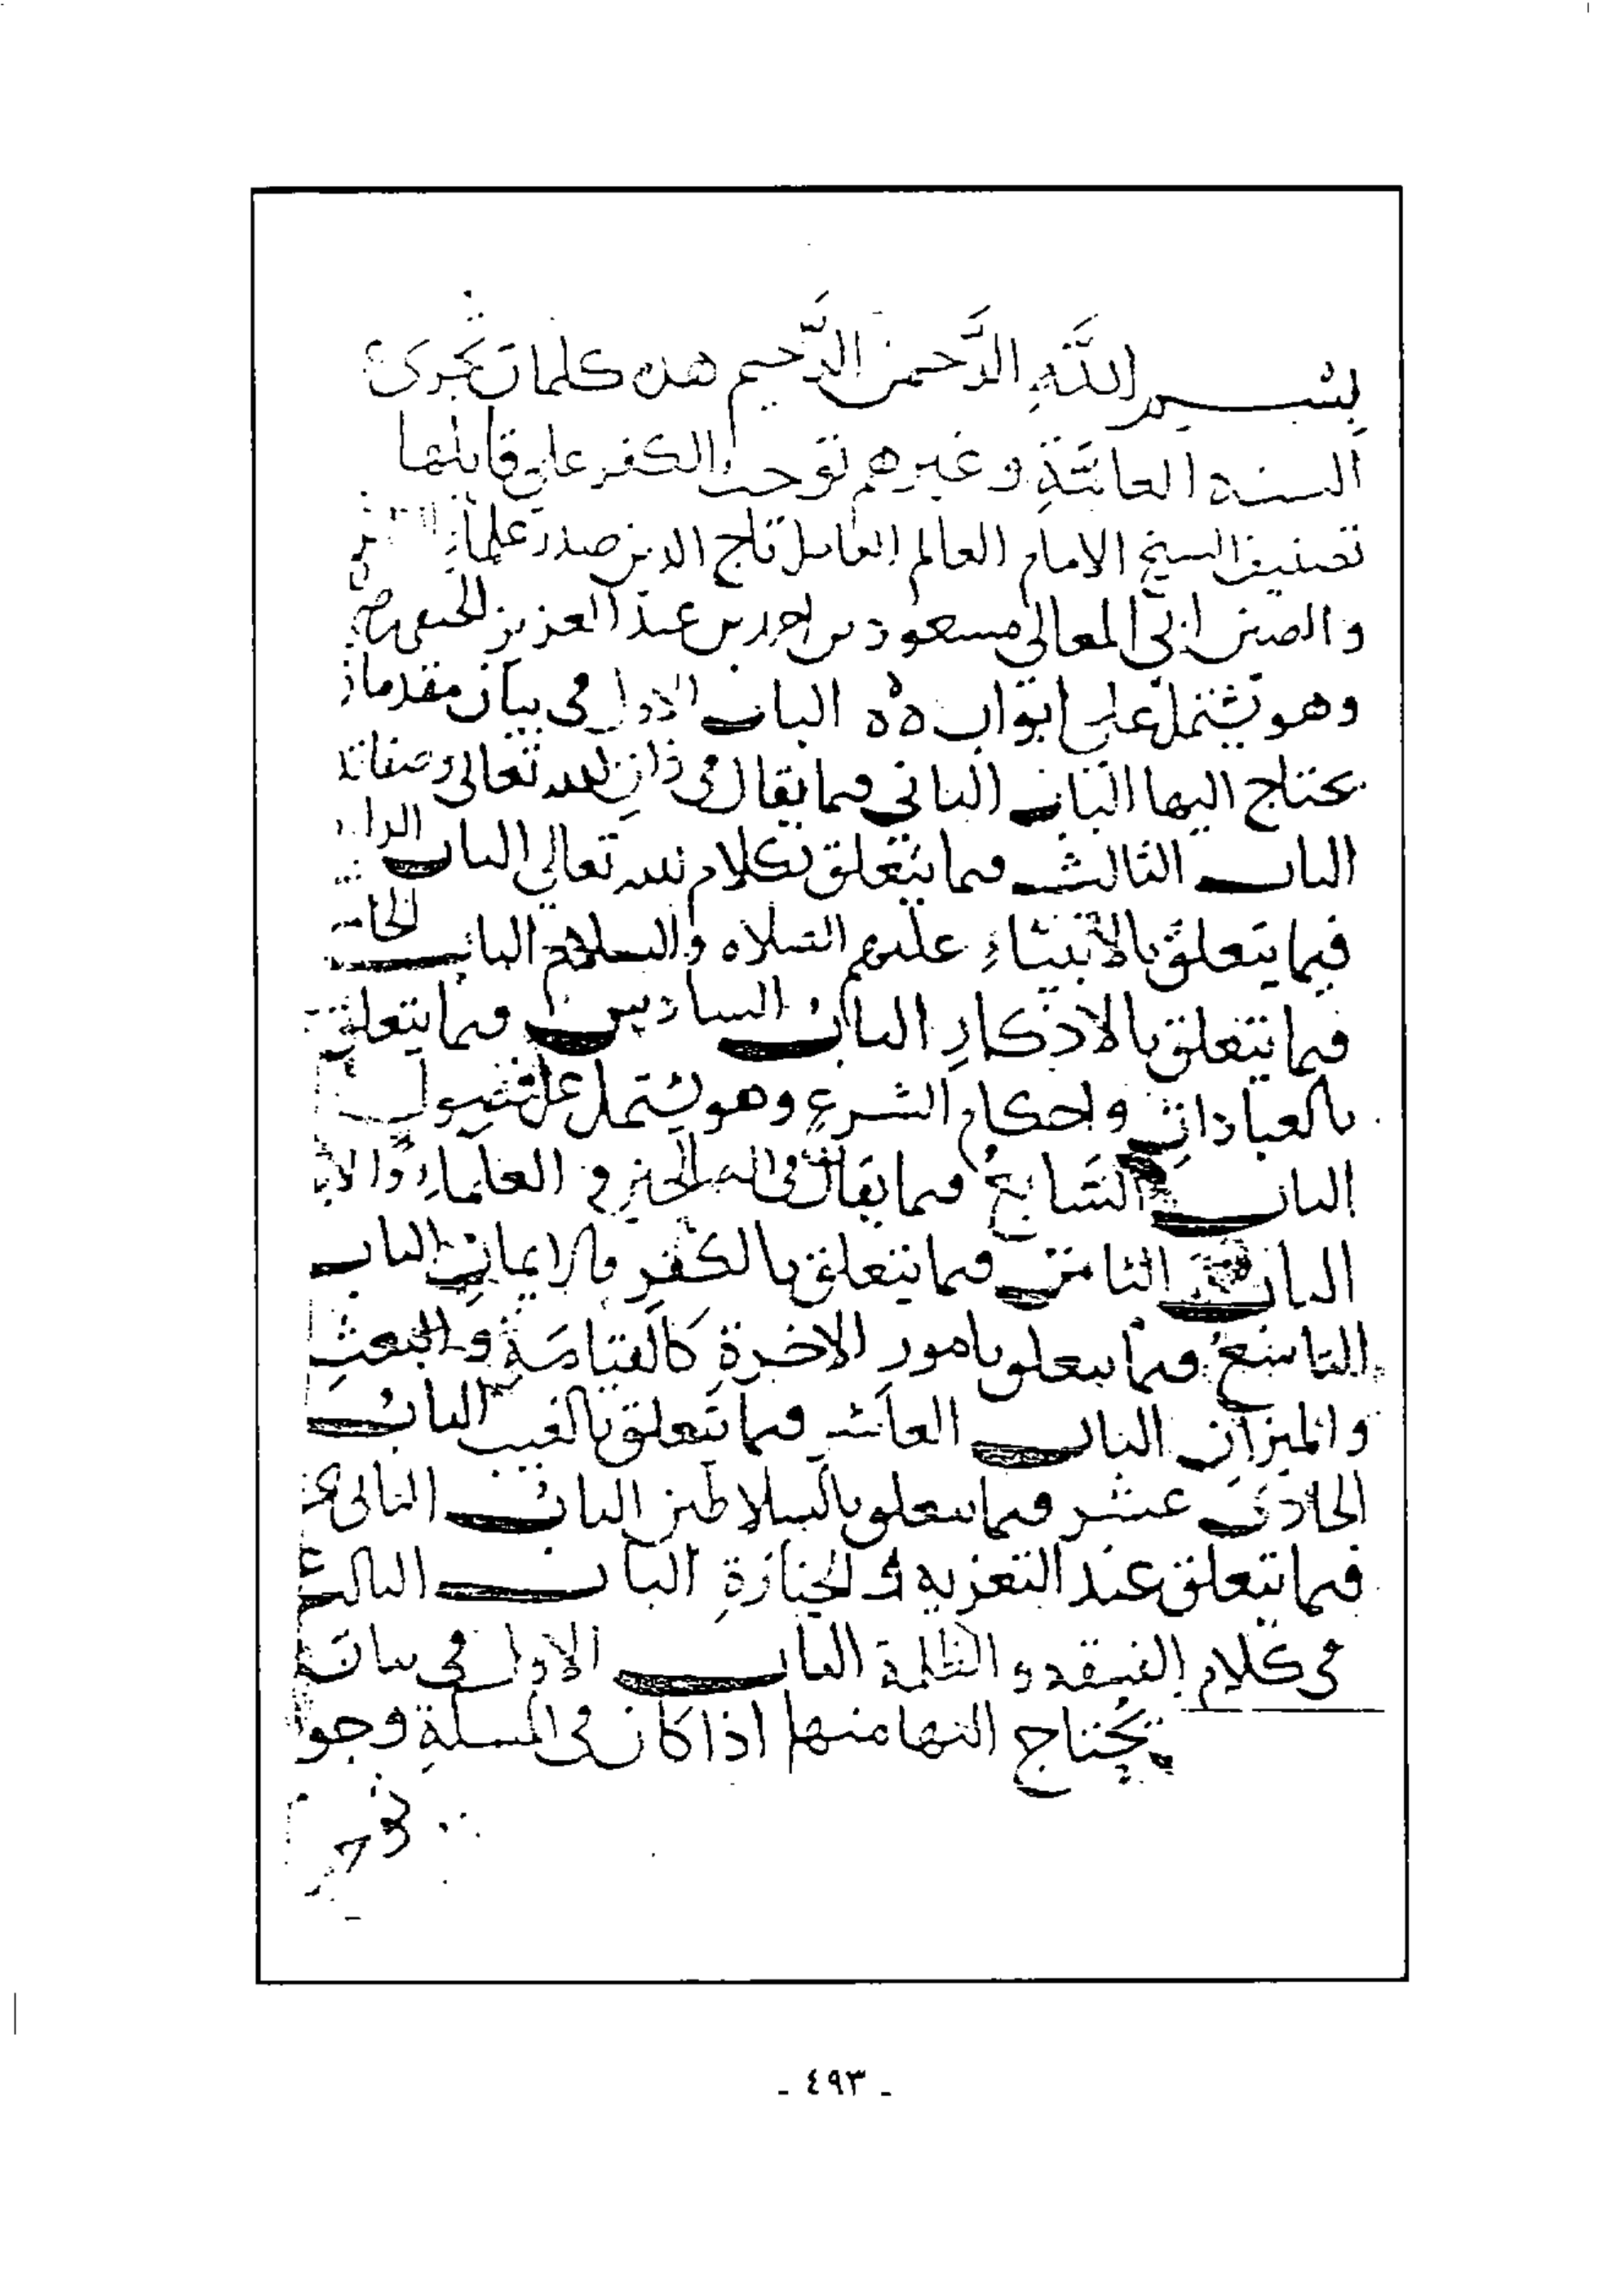 بسم اللَّهِ الرَّحمن الرَّحيم هذه كلمات تجري ع
السنة العامّةِ وغيرهم توجب الكفر علي قايلها
تصنيف الشيخ الامام العالم العامل تاج الدين صدر علماء
والصين ابي المعالي مسعود بن احمد بن عبد العزيز الحنفي
وهو يشتمل علي ابواب ه ه الباب الاول في بيان مقدمات
يحتاج اليها الباب الثاني فيما يقال في ذاتِ الله تعالى وصفاته
الباب الثالث فيما يتعلق بكلام الله تعالي الباب الرابع
فيما يتعلق بالأنبيَاءِ عليهم الصلاه والسلام الباب الخامس
فيما يتعلق بالاذكارِ الباب السادس فيما يتعلق
بالعباداتِ واحكام الشرعِ وهو يشتمل على فصول
الباب السَّابعُ فيما يقال في العلمَاءِ والا
الباب الثامن فيما يتعلق بالكفرِ والايمانِ الباب
التاسعُ فيما يتعلق بامور الاخرةِ كالقيامَةِ والبعثِ
والميزانِ الباب العاشر فيما يتعلق بالغيب الباب
الحادي عشر فيما يتعلق بالسلاطين الباب الثاني ع
فيما يتعلق عند التعزيه والجنازةِ الباب الثالث ع
في كلام الفسقه والظلمة الباب الاول في بيان
يحتاج اليها منها اذا كان في المسلةِ وجوه
- ٤٩٣ -